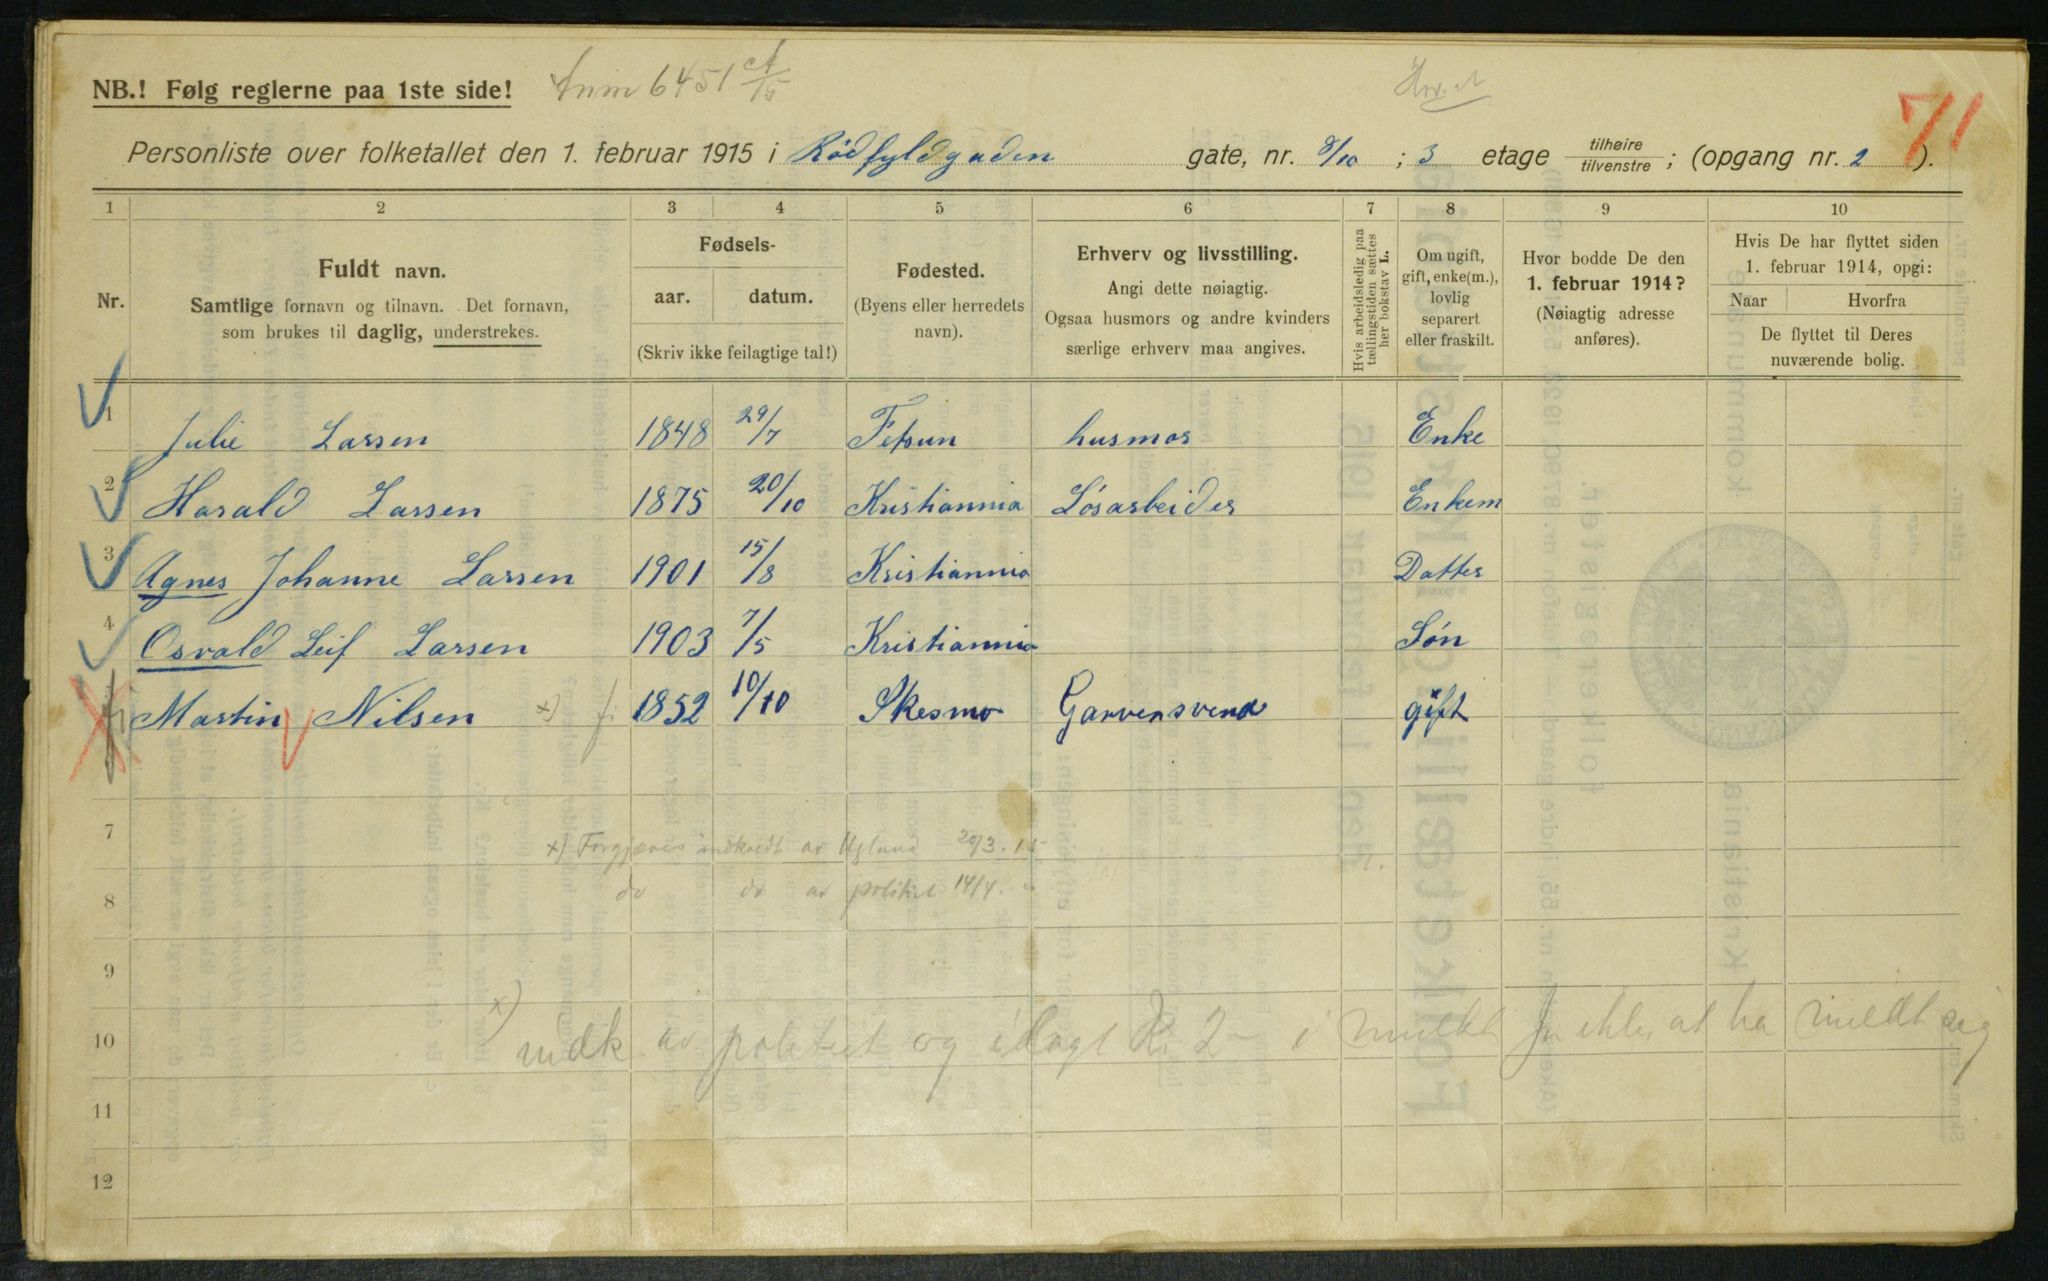 NB.! Følg reglerne paa 1ste side! 6451
71
Personliste over folketallet den 1. februar 1915 i Rödfyldgaden gate, nr. 8/10 ; 3 etage tilhøire tilvenstre ; (opgang nr. 2 ).
1 2 3 4 5 6 7 8 9 10
Nr.
Fuldt navn.
Samtlige fornavn og tilnavn. Det fornavn,
som brukes til daglig, understrekes.
Fødsels-
aar. datum.
(Skriv ikke feilagtige tal!)
Fødested.
(Byens eller herredets
navn).
Erhverv og livsstilling.
Angi dette nøiagtig.
Ogsaa husmors og andre kvinders
særlige erhverv maa angives.
Hvis arbeidsledig paa
tællingstiden sættes
her bokstav L.
Om ugift,
gift, enke(m.),
lovlig
separert
eller fraskilt.
Hvor bodde De den
1. februar 1914?
(Nøiagtig adresse
anføres).
Hvis De har flyttet siden
1. februar 1914, opgi:
Naar Hvorfra
De flyttet til Deres
nuværende bolig.
1 Julie Larsen 1848 29/7 Fetsun husmor Enke
2 Harald Larsen 1875 20/10 Kristiannia Lösarbeider Enkem
3 Agnes Johanne Larsen 1901 15/8 Kristiannia Datter
4 Osvald Leif Larsen 1903 7/5 Kristiannia Sön
Martin Nilsen x) 1852 10/10 Skesmo Garversvend gift
7 x) Forgjæves indkaldt av Ugland 20/3. 15
8 do do av politiet 14/4 "
9
x)
10 indk av politiet og ilagt Kr 2 - i mulkt for ikke at ha meldt sig
11
12